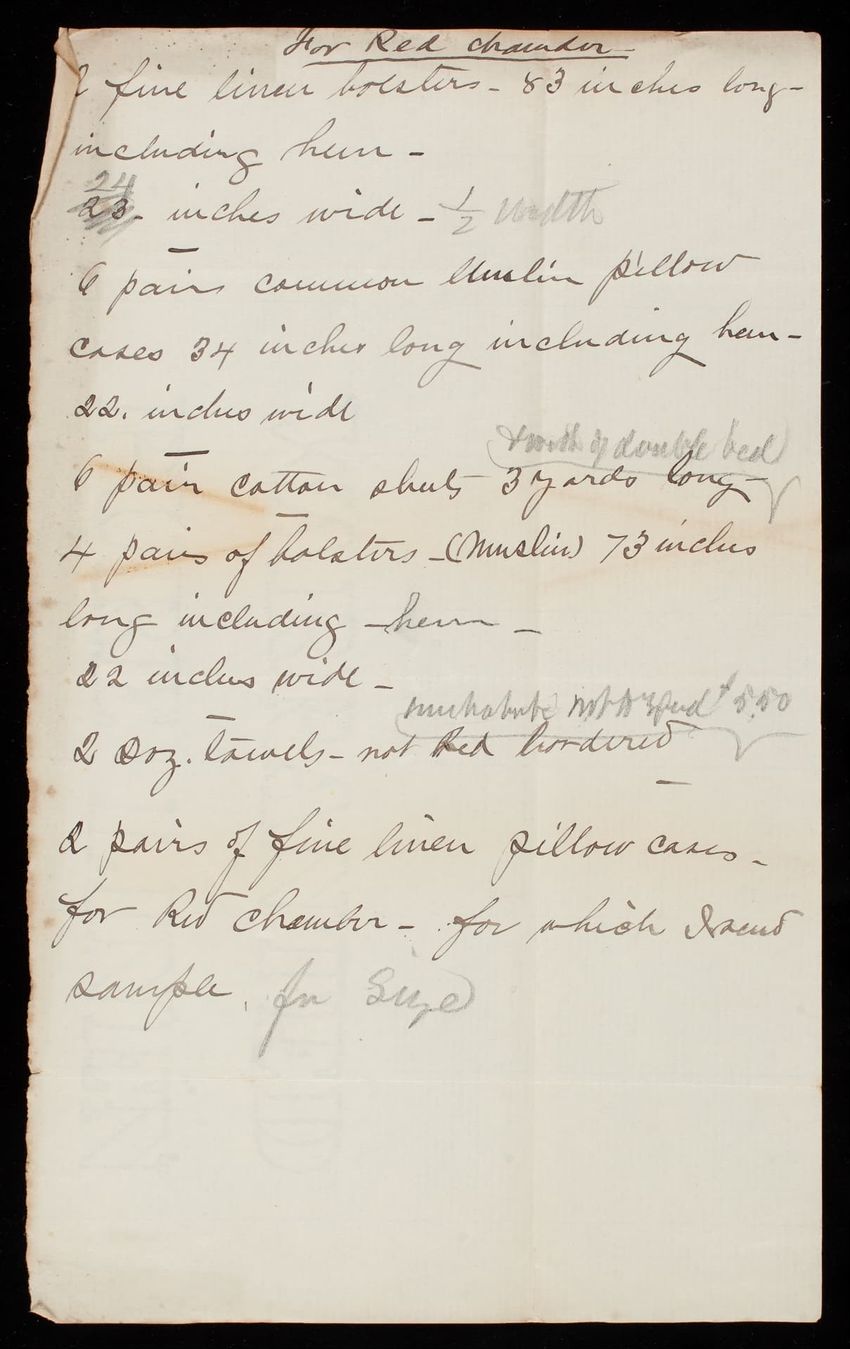 For Red chamber
2 fine linen bolsters - 83 inches long -
including hem -
24
23. inches wide - 1/2 width
6 pairs common Muslin pillow
cases 34 inches long including hem -
22. inches wide
width of double bed
6 pair cotton sheets 3 yards long -
4 pairs of bolsters - (Muslin) 73 inches
long including - hem -
22 inches wide -
not to $5.50
2 Doz. towels - not Red bordered
2 pairs of fine linen pillow cases -
for Red chamber - for which I send
sample. for Size